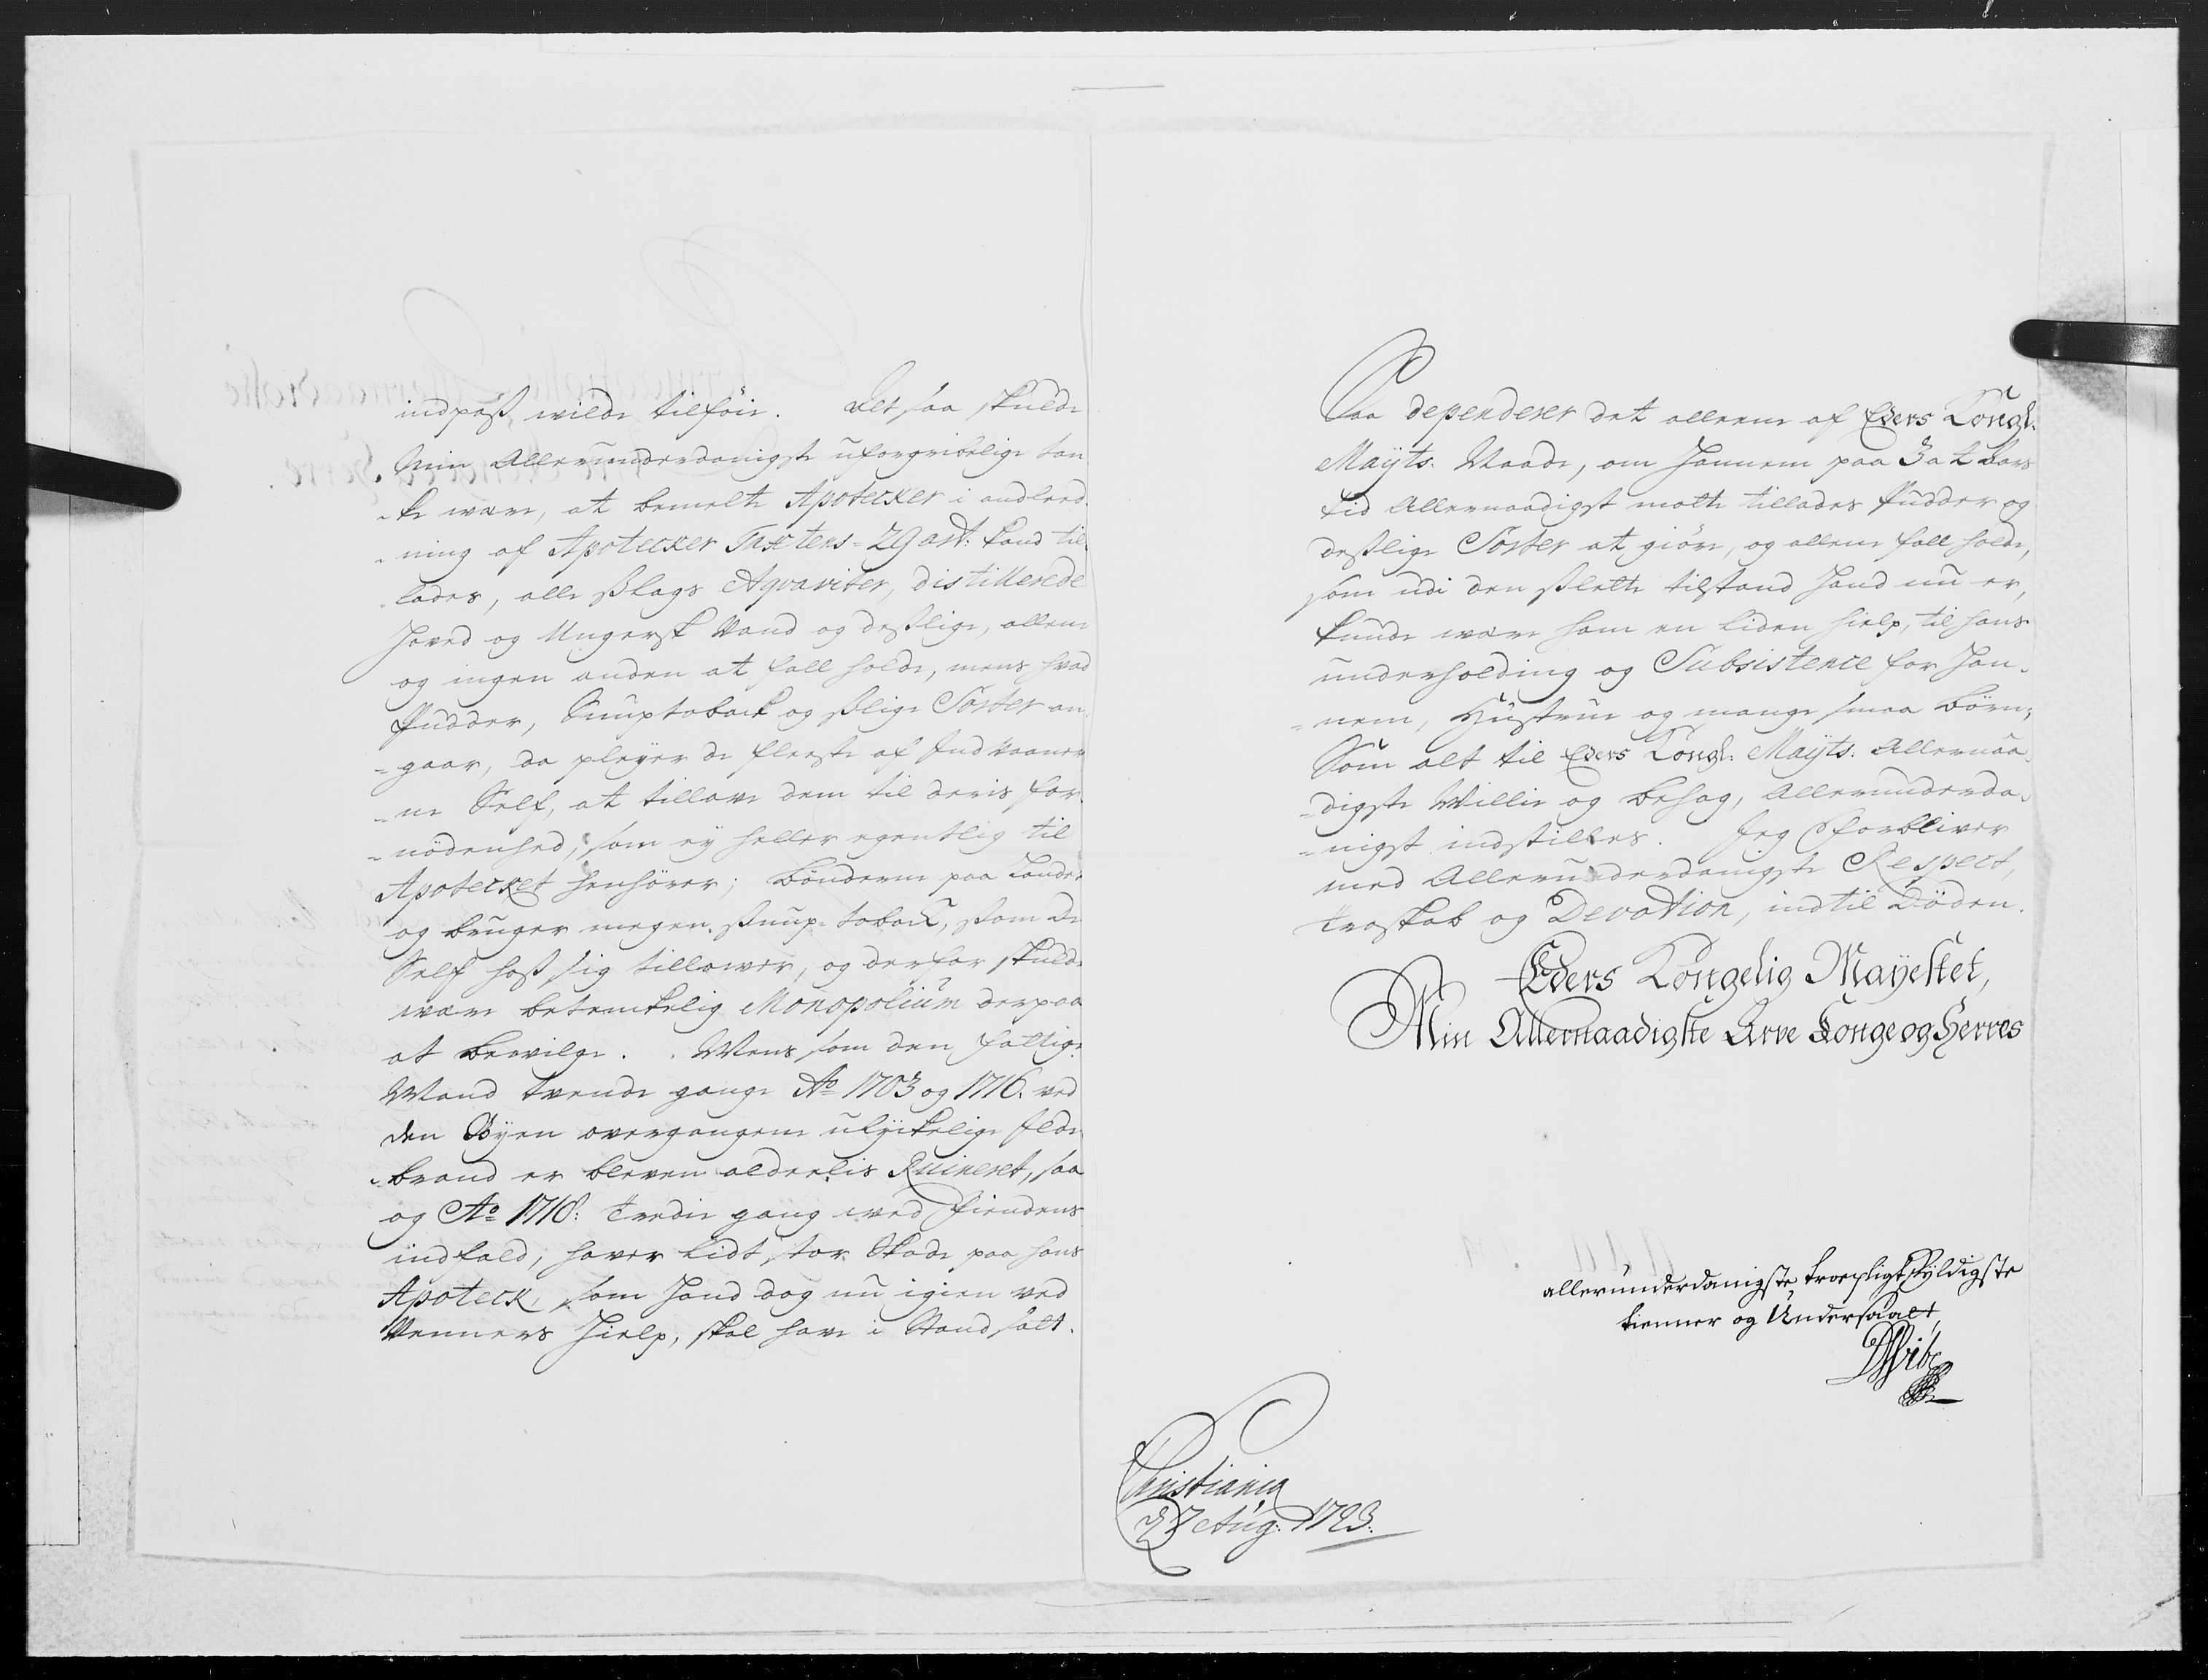 indpaß wilde tilföie. Alt saa skulde
Min Allerunderdanigste uforgribelige tan
-ke være, at bemelte Apotecker i andleed
-ning af Apotecker Taxtens-29 art: kand til
lades, alle slags Aqvaviter, distillerede
Hoved og Ungersk Vand og deslige, allene
og ingen anden at fall holde, mens hvad
Pudder, Snuptoback og slige Sorter an
-gaar, da pleyer de fleeste af Indvaaner
-ne Self, at tillave dem til deris for
-nödenhed, som ey heller egentlig til
Apotecket henhörer; Bönderne paa Landet
og bruger megen Snup-toback, som de
Self hoß sig tillawer, og derfor skulde
være betenkelig Monopolium derpaa
at bevilge. Mens som den fattige
Mand trende gange Ao 1703 og 1716. ved
den Byen overgangene ulyckelige Ilde
brand er bleven alderlis Ruineret, saa
og Ao 1718: tredie gang ved Fiendens
indfald, haver lidt stor Skade paa hans
Apoteck, som Hand dog nu igien ved
Venners Hielp, skal have i Stand satt.
Saa dependerer det allene af Eders Kongl.
Mayts: Naade, om Hannem paa 3 a 4 Aars
tid Allernaadigst motte tillades Pudder og
deslige Sorter at giöre, og allene fall holde,
som udi den slette tilstand Hand nu er,
kunde være ham en liden hielp, til hans
underholding og Subsistence for Han-
-nem, Hustrue og mange smaa Börn;
Som alt til Eders Kongl: Mayts: Allernaa
-digste Willie og behag, Allerunderda-
-nigst indstilles. Jeg forbliver
med Allerunderdanigste Respect,
troskab og Devotion, indtil Döden.
Eders Kongelig Mayestet,
Min Allernaadigste Arve Konge og Herres
allerunderdanigste, troepligtskyldigste
tienner og Undersaat,
DVibe
Christiania
27 Aug: 1723.